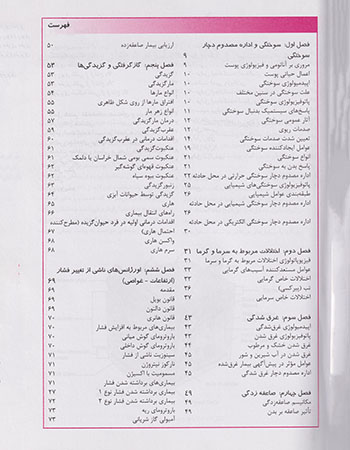 فهرست
فصل اول: سوختگی و اداره مصدوم دچار
سوختگی ۹
مروری بر آناتومی و فیزیولوژی پوست ۹
اعمال حیاتی پوست ۱۰
اپیدمیولوژی سوختگی ۱۰
علت سوختگی در سنین مختلف ۱۰
پاتوفیزیولوژی سوختگی ۱۰
پاسخ‌های سیستمیک بدنبال سوختگی
آثار عمومی سوختگی ۱۲
صدمات ریوی ۱۲
تعیین شدت صدمات سوختگی ۱۴
عوامل ایجادکننده سوختگی ۱۹
انواع سوختگی ۲۱
پاسخ بدن به سوختگی ۲۱
اداره مصدوم دچار سوختگی حرارتی در محل حادثه ۲۲
پاتوفیزیولوژی سوختگی‌های شیمیایی ۲۵
طبقه‌بندی عوامل شیمیایی ۲۶
اداره مصدوم دچار سوختگی شیمیایی در محل حادثه
۲۶
اداره مصدوم دچار سوختگی الکتریکی در محل حادثه
۳۰
فصل دوم: اختلالات مربوط به سرما و گرما ۳۱
فیزیوپاتولوژی اختلالات مربوط به گرما و سرما ۳۱
عوامل مستعدکننده آسیب‌های گرمایی ۳۳
اختلالات خاص گرمایی ۳۳
تب (پیرکسی) ۳۶
اختلالات خاص سرمایی ۳۷
فصل سوم: غرق شدگی ۴۳
اپیدمیولوژی غرق‌شدگی ۴۳
پاتوفیزیولوژی غرق شدن ۴۳
غرق شدن خشک و مرطوب ۴۴
غرق شدن در آب شیرین و شور ۴۵
عوامل مؤثر در پیش‌آگهی بیمار غرق‌شده ۴۵
اداره مصدوم دچار غرق شدگی ۴۵
فصل چهارم: صاعقه زدگی ۴۹
مکانیسم صاعقه‌زدگی ۴۹
تأثیر صاعقه بر بدن ۴۹
ارزیابی بیمار صاعقه‌زده ۵۰
فصل پنجم: گازگرفتگی و گزیدگی‌ها ۵۳
گزیدگی ۵۳
مارگزیدگی ۵۳
انواع مارها ۵۴
افتراق مارها از روی شکل ظاهری ۵۵
انواع زهر مار ۵۵
درمان مارگزیدگی ۵۷
عقرب‌گزیدگی ۵۹
اقدامات درمانی در عقرب‌گزیدگی ۶۰
عنکبوت‌گزیدگی ۶۱
عنکبوت سمی بومی شمال خراسان یا دلمک ۶۱
عنکبوت قهوه‌ای گوشه‌گیر ۶۲
عنکبوت بیوه سیاه ۶۲
زنبورگزیدگی ۶۳
گزیدگی توسط حیوانات آبزی ۶۴
هاری ۶۵
راه‌های انتقال بیماری ۶۶
اقدامات درمانی اولیه در فرد حیوان‌گزیده (مطرح‌کننده
احتمال هاری) ۶۷
واکسن هاری ۶۸
سرم هاری ۶۸
فصل ششم: اورژانس‌های ناشی از تغییر فشار
(ارتفاعات - غواصی) ۶۹
مقدمه ۶۹
قانون بویل ۶۹
قانون دالتون ۶۹
قانون هانری ۶۹
بیماری‌های مربوط به افزایش فشار ۷۰
باروترومای گوش میانی ۷۰
باروترومای گوش داخلی ۷۰
سینوزیت ناشی از فشار ۷۱
نارکوز نیتروژن ۷۱
مسمومیت با اکسیژن ۷۱
بیماری‌های برداشته شدن فشار ۷۱
بیماری برداشته شدن فشار نوع ۱ ۷۲
بیماری برداشته شدن فشار نوع ۲ ۷۲
باروترومای ریه ۷۳
آمبولی گاز شریانی ۷۳